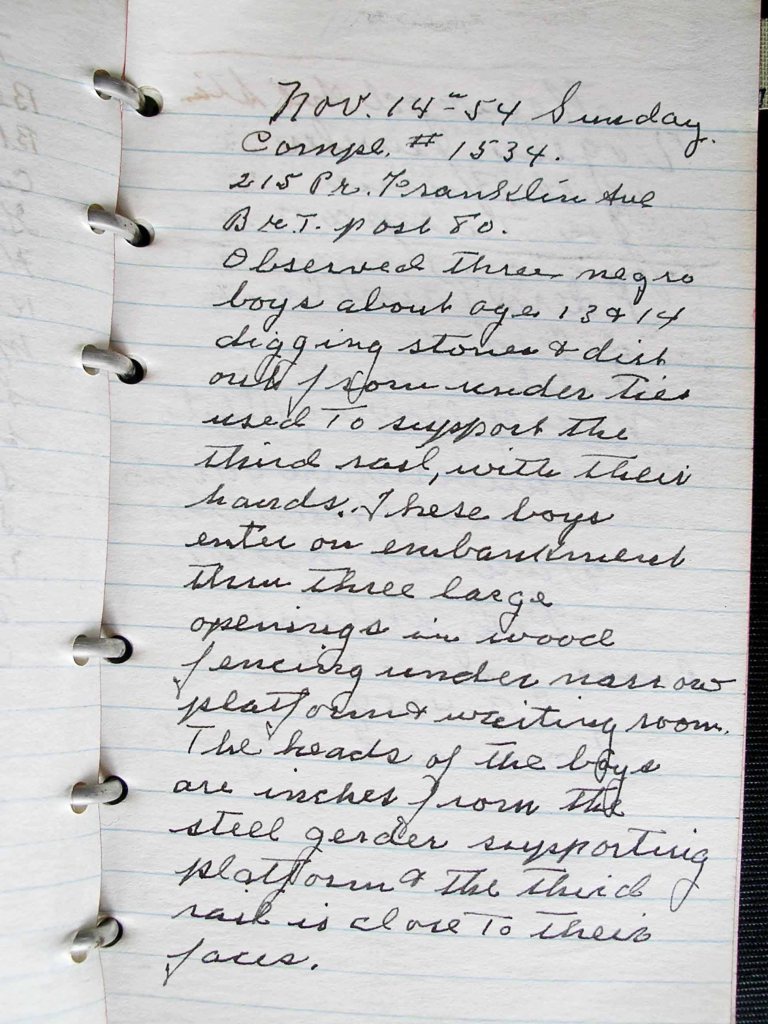 Nov. 14" - 54 Sunday.
Compl. # 1534.
215 Pr. Franklin Ave
B.M.T. post 80.
Observed three negro
boys about age 13 & 14
digging stones & dirt
out from under ties
used to support the
third rail, with their
hands. These boys
enter on embankment
thru three large
openings in wood
fencing under narrow
platform & waiting room.
The heads of the boys
are inches from the
steel gerder supporting
platform & the third
rail is close to their
faces.